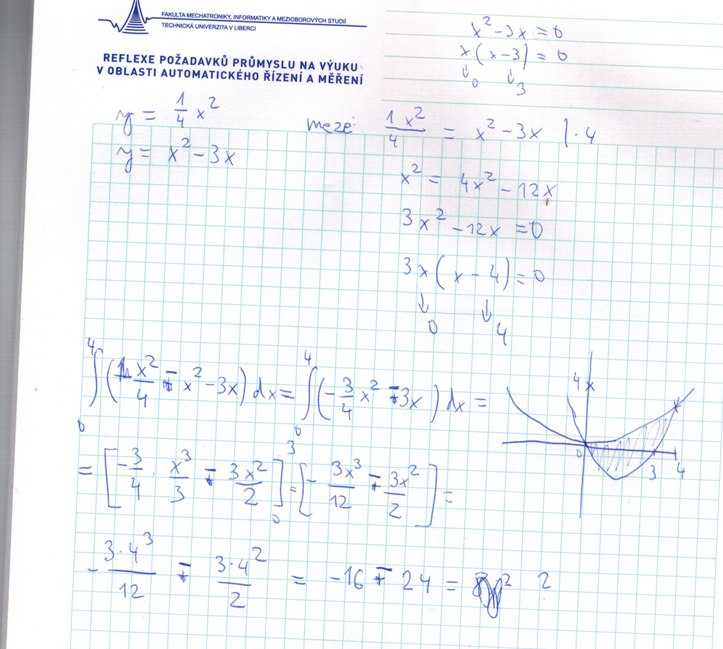 FAKULTA MECHATRONIKY, INFORMATIKY A MEZIOBOROVÝCH STUDIÍ
TECHNICKÁ UNIVERZITA V LIBERCI
REFLEXE POŽADAVKŮ PRŮMYSLU NA VÝUKU
V OBLASTI AUTOMATICKÉHO ŘÍZENÍ A MĚŘENÍ
x² - 3x = 0
x(x - 3) = 0
↓0 ↓3
y = 1/4 x²
y = x² - 3x
meze 1x²/4 = x² - 3x | · 4
x² = 4x² - 12x
3x² - 12x = 0
3x(x - 4) = 0
↓0 ↓4
∫₀⁴ (x²/4 - x² - 3x) dx = ∫₀⁴ (-3/4 x² + 3x) dx =
= [-3/4 · x³/3 + 3x²/2]₀³ = [-3x³/12 + 3x²/2] =
-3·4³/12 + 3·4²/2 = -16 + 24 =
4
0 3 4